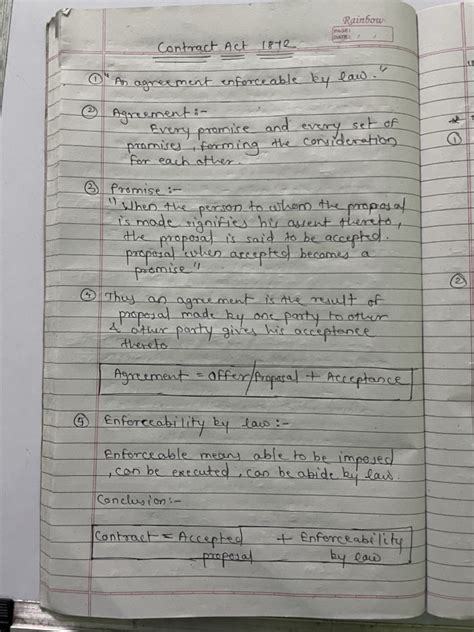 Rainbow
PAGE:
DATE: / /
Contract Act 1872
① "An agreement enforceable by law."
② Agreement:-
Every promise and every set of
promises, forming the consideration
for each other.
③ Promise :-
"When the person to whom the proposal
is made signifies his assent thereto,
the proposal is said to be accepted.
proposal when accepted becomes a
promise"
④ Thus an agreement is the result of
proposal made by one party to other
& other party gives his acceptance
thereto
Agreement = offer/Proposal + Acceptance
⑤ Enforceability by law :-
Enforceable means able to be imposed
, can be executed, can be abide by law.
Conclusion:-
Contract = Accepted + Enforceability
proposal by law
①
②